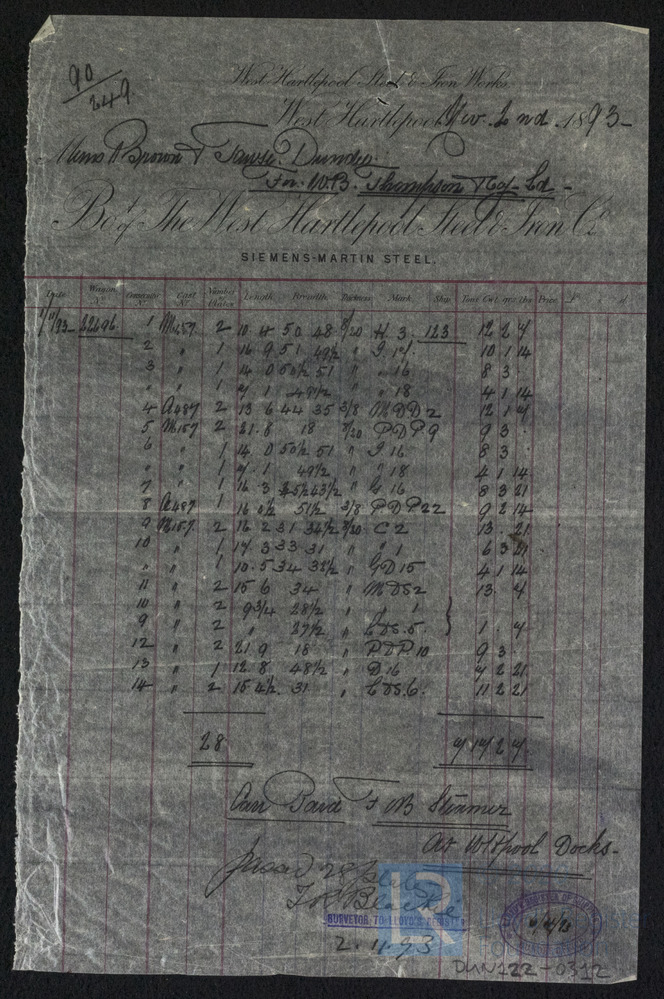 90/249
West Hartlepool Steel & Iron Works
West Hartlepool Nov. 2nd 1893-
Messrs Brown & Tawse. Dundee.
For W.B. Thompson & Coy. Ld-
Bot of The West Hartlepool Steel & Iron Co.
SIEMENS-MARTIN STEEL.
Date Wagon No. Cast No. Number of Plates Length Breadth Thickness Mark Ship Tons Cwt. qrs. lbs. Price £ s d
22696 1 M157 2 10 4 50 48 7/20 H 3. 123 12 2 4
2 " 1 16 9 51 49½ " 10 1 14
3 " 1 14 0 50½ 51 " " 16 8 3
" " 1 7 1 49½ " " 18 4 1 14
4 A487 2 13 6 44 35 3/8 MDD2 12 1 4
5 M157 2 21.8 18 7/20 PDP9 9 3
6 " 1 14 0 50½ 51 " 16 8 3
" " 1 7 1 49½ " " 18 4 1 14
7 " 1 16 3 43½ " 16 8 3 21
8 A487 1 16 0½ 51½ 3/8 PDP22 9 2 14
9 M157 2 16 2 31 34½ 7/20 C2 13 21
10 " 1 17 3 33 31 " " 1 6 3 21
" " 1 10.5 34 32½ " GD15 4 1 14
11 " 2 15 6 34 " MDS2 13 4
10 " 2 9 3/4 28½ " " 1
9 " 2 " 27½ " LDS.5. } 1 4
12 " 2 21 9 18 " PDP10 9 3
13 " 1 12 8 48½ " D16 7 2 21
14 " 2 15 4½ 31 " LDS6. 11 2 21
28 7 17 2 7
Carr Paid F.O.B Steamer
At W Hpool Docks-
28 plates
Blackie
SURVEYOR TO LLOYD'S REGISTER
2.11.93
LR
DUN122-0312